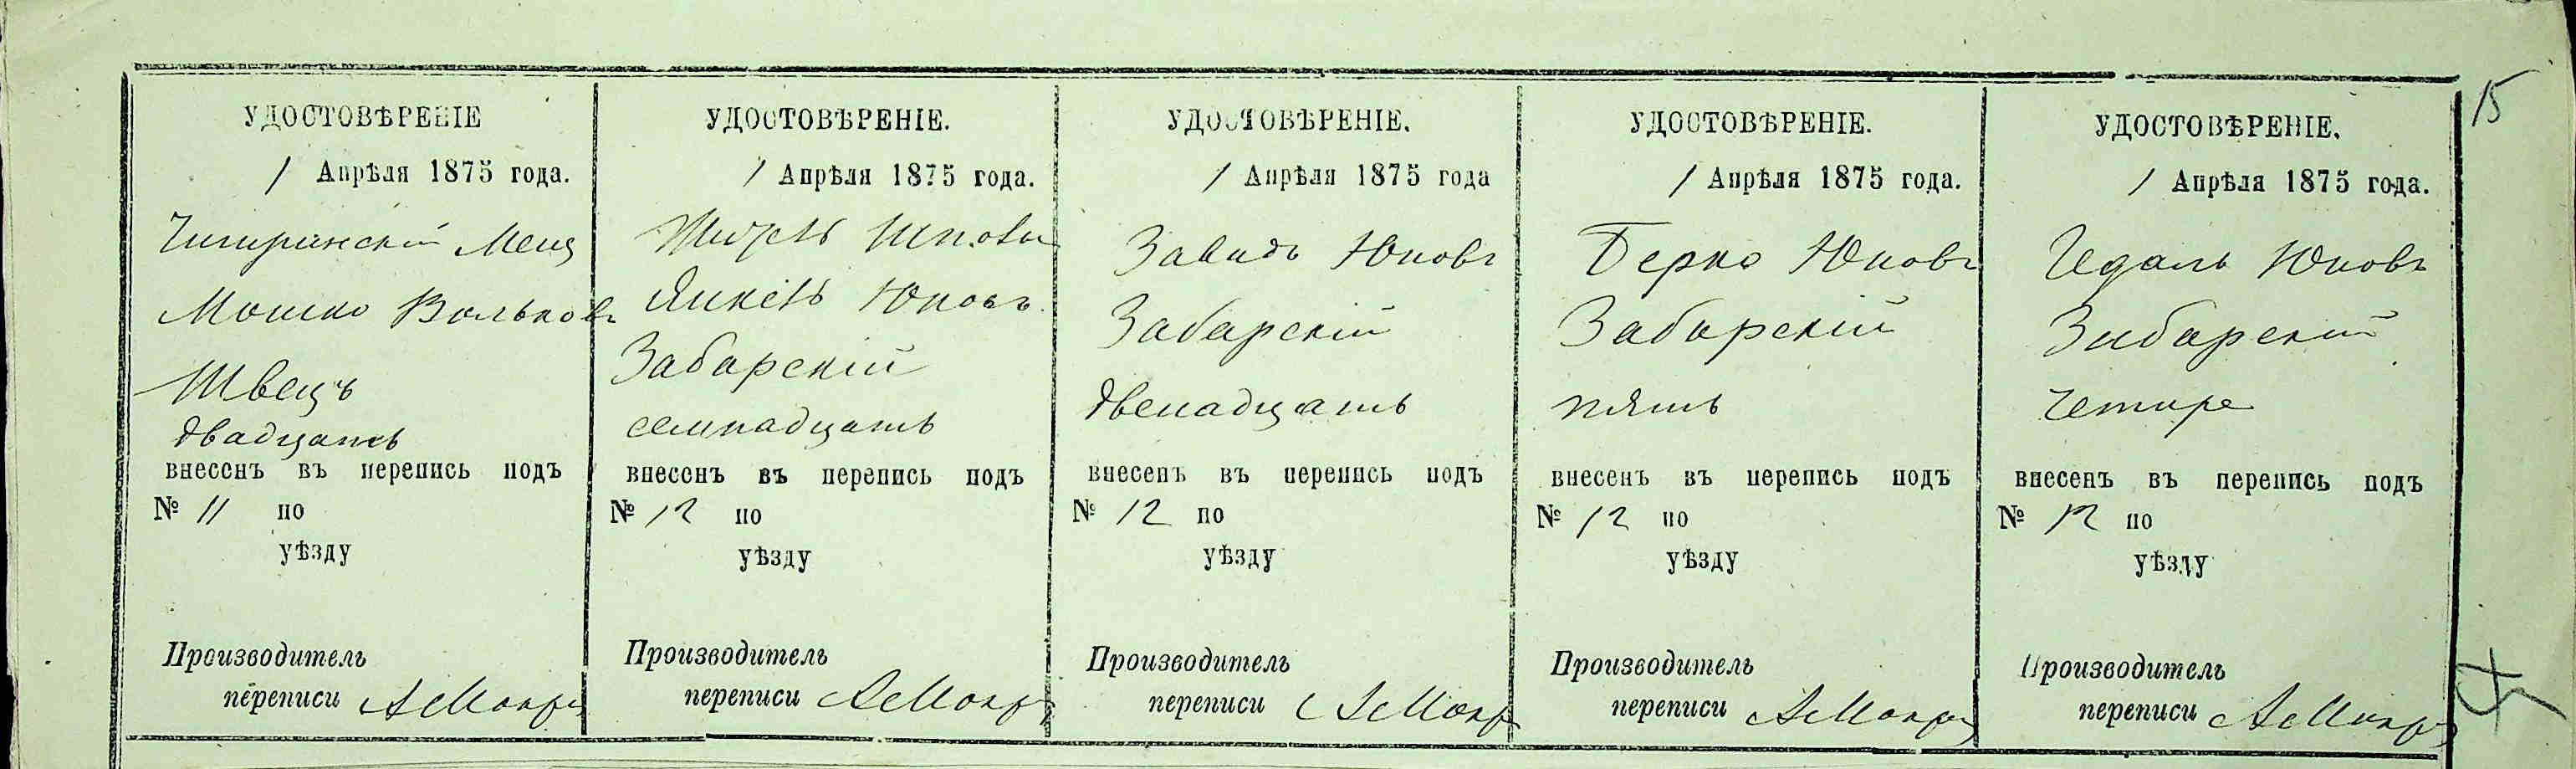 15
УДОСТОВѢРЕНІЕ
1 Апрѣля 1875 года.
Чигиринскій Мещ
Мошко Вольковъ
Швецъ
двадцать
внесенъ въ перепись подъ
№ 11 по
уѣзду
Производитель
переписи
УДОСТОВѢРЕНІЕ.
1 Апрѣля 1875 года.
Янкель Юковъ
Забарскій
семнадцать
внесенъ въ перепись подъ
№ 12 по
уѣзду
Производитель
переписи
УДОСТОВѢРЕНІЕ.
1 Апрѣля 1875 года
Завидъ Юковъ
Забарскій
двенадцать
внесенъ въ перепись подъ
№ 12 по
уѣзду
Производитель
переписи
УДОСТОВѢРЕНІЕ.
1 Апрѣля 1875 года.
Берко Юковъ
Забарскій
пять
внесенъ въ перепись подъ
№ 12 по
уѣзду
Производитель
переписи
УДОСТОВѢРЕНІЕ.
1 Апрѣля 1875 года.
Гедаль Юковъ
Забарскій
четире
внесенъ въ перепись подъ
№ 12 по
уѣзду
Производитель
переписи